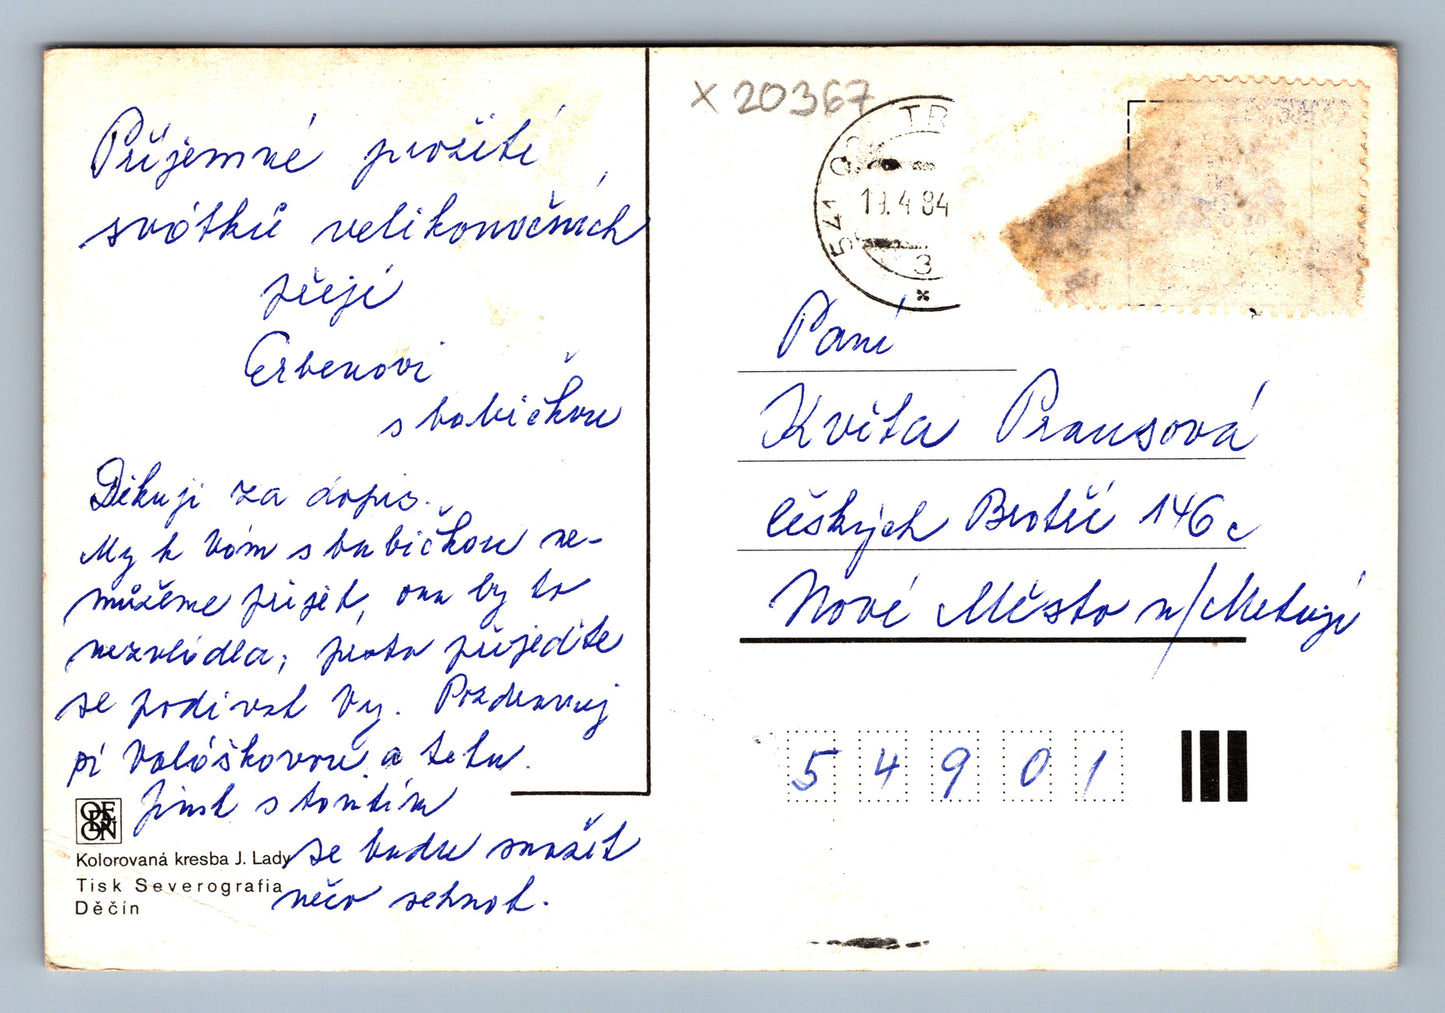 Příjemné prožití
svátků velikonočních
přejí
Erbenovi
s babičkou
Děkuji za dopis.
My k Vám s babičkou ne-
můžeme přijet, ona by to
nezvládla, proto přijeďte
se podívat Vy. Pozdravuj
pí Valáškovou a tetu.
Jinak s tou
se budu snažit
něco sehnat.
ODEON
Kolorovaná kresba J. Lady
Tisk Severografia
Děčín
x 20367
541 0 TR
19.4.84
3
Paní
Květa Prausová
Českých Bratří 146 c
Nové Město n/Metují
54901